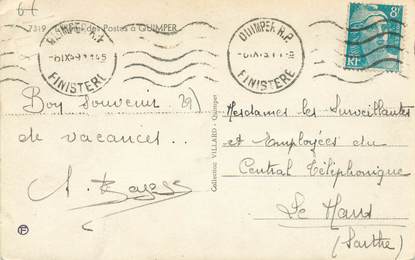 7319
des Postes à QUIMPER
QUIMPER R.P.
FINISTERE
QUIMPER R.P.
FINISTERE
8F
RF
Bon souvenir
de vacances..
Collection VILLARD - Quimper
Mesdames les Surveillantes
et Employées du
Central Téléphonique
Le Mans
(Sarthe)